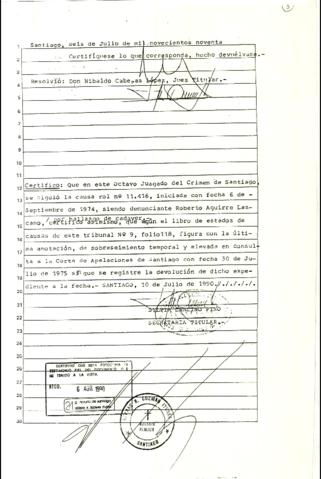 Santiago, seis de Julio de mil novecientos noventa
Certifíquese lo que corresponda, hecho devuélvase.-
Resolvió: Don Nibaldo Cabezas López, Juez Titular.-
Certifico: Que en este Octavo Juzgado del Crimen de Santiago,
se siguió la causa rol nº 11.416, iniciada con fecha 6 de
Septiembre de 1974, siendo denunciante Roberto Aguirre
/ por hallazgo de cadáver.-
folio, certifico asimismo, que según el libro de estados de
causas de este tribunal Nº 9, folio 118, figura con la últi-
ma anotación, de sobreseimiento temporal y elevada en Consul-
ta a la Corte de Apelaciones de Santiago con fecha 30 de Ju-
lio de 1975 sin que se registre la devolución de dicho expe-
diente a la fecha.- SANTIAGO, 10 de Julio de 1990./././././
PINO
SECRETARIA TITULAR.-
CERTIFICO QUE ESTA FOTOCOPIA ES
TESTIMONIO FIEL DEL DOCUMENTO QUE
HE TENIDO A LA VISTA
STGO. 6 ABR 1998
21
GUZMAN
NOTARIO
PUBLICO
SANTIAGO
1
2
3
4
5
6
7
8
9
10
11
12
13
14
15
16
17
18
19
20
21
22
23
24
25
26
27
28
29
30